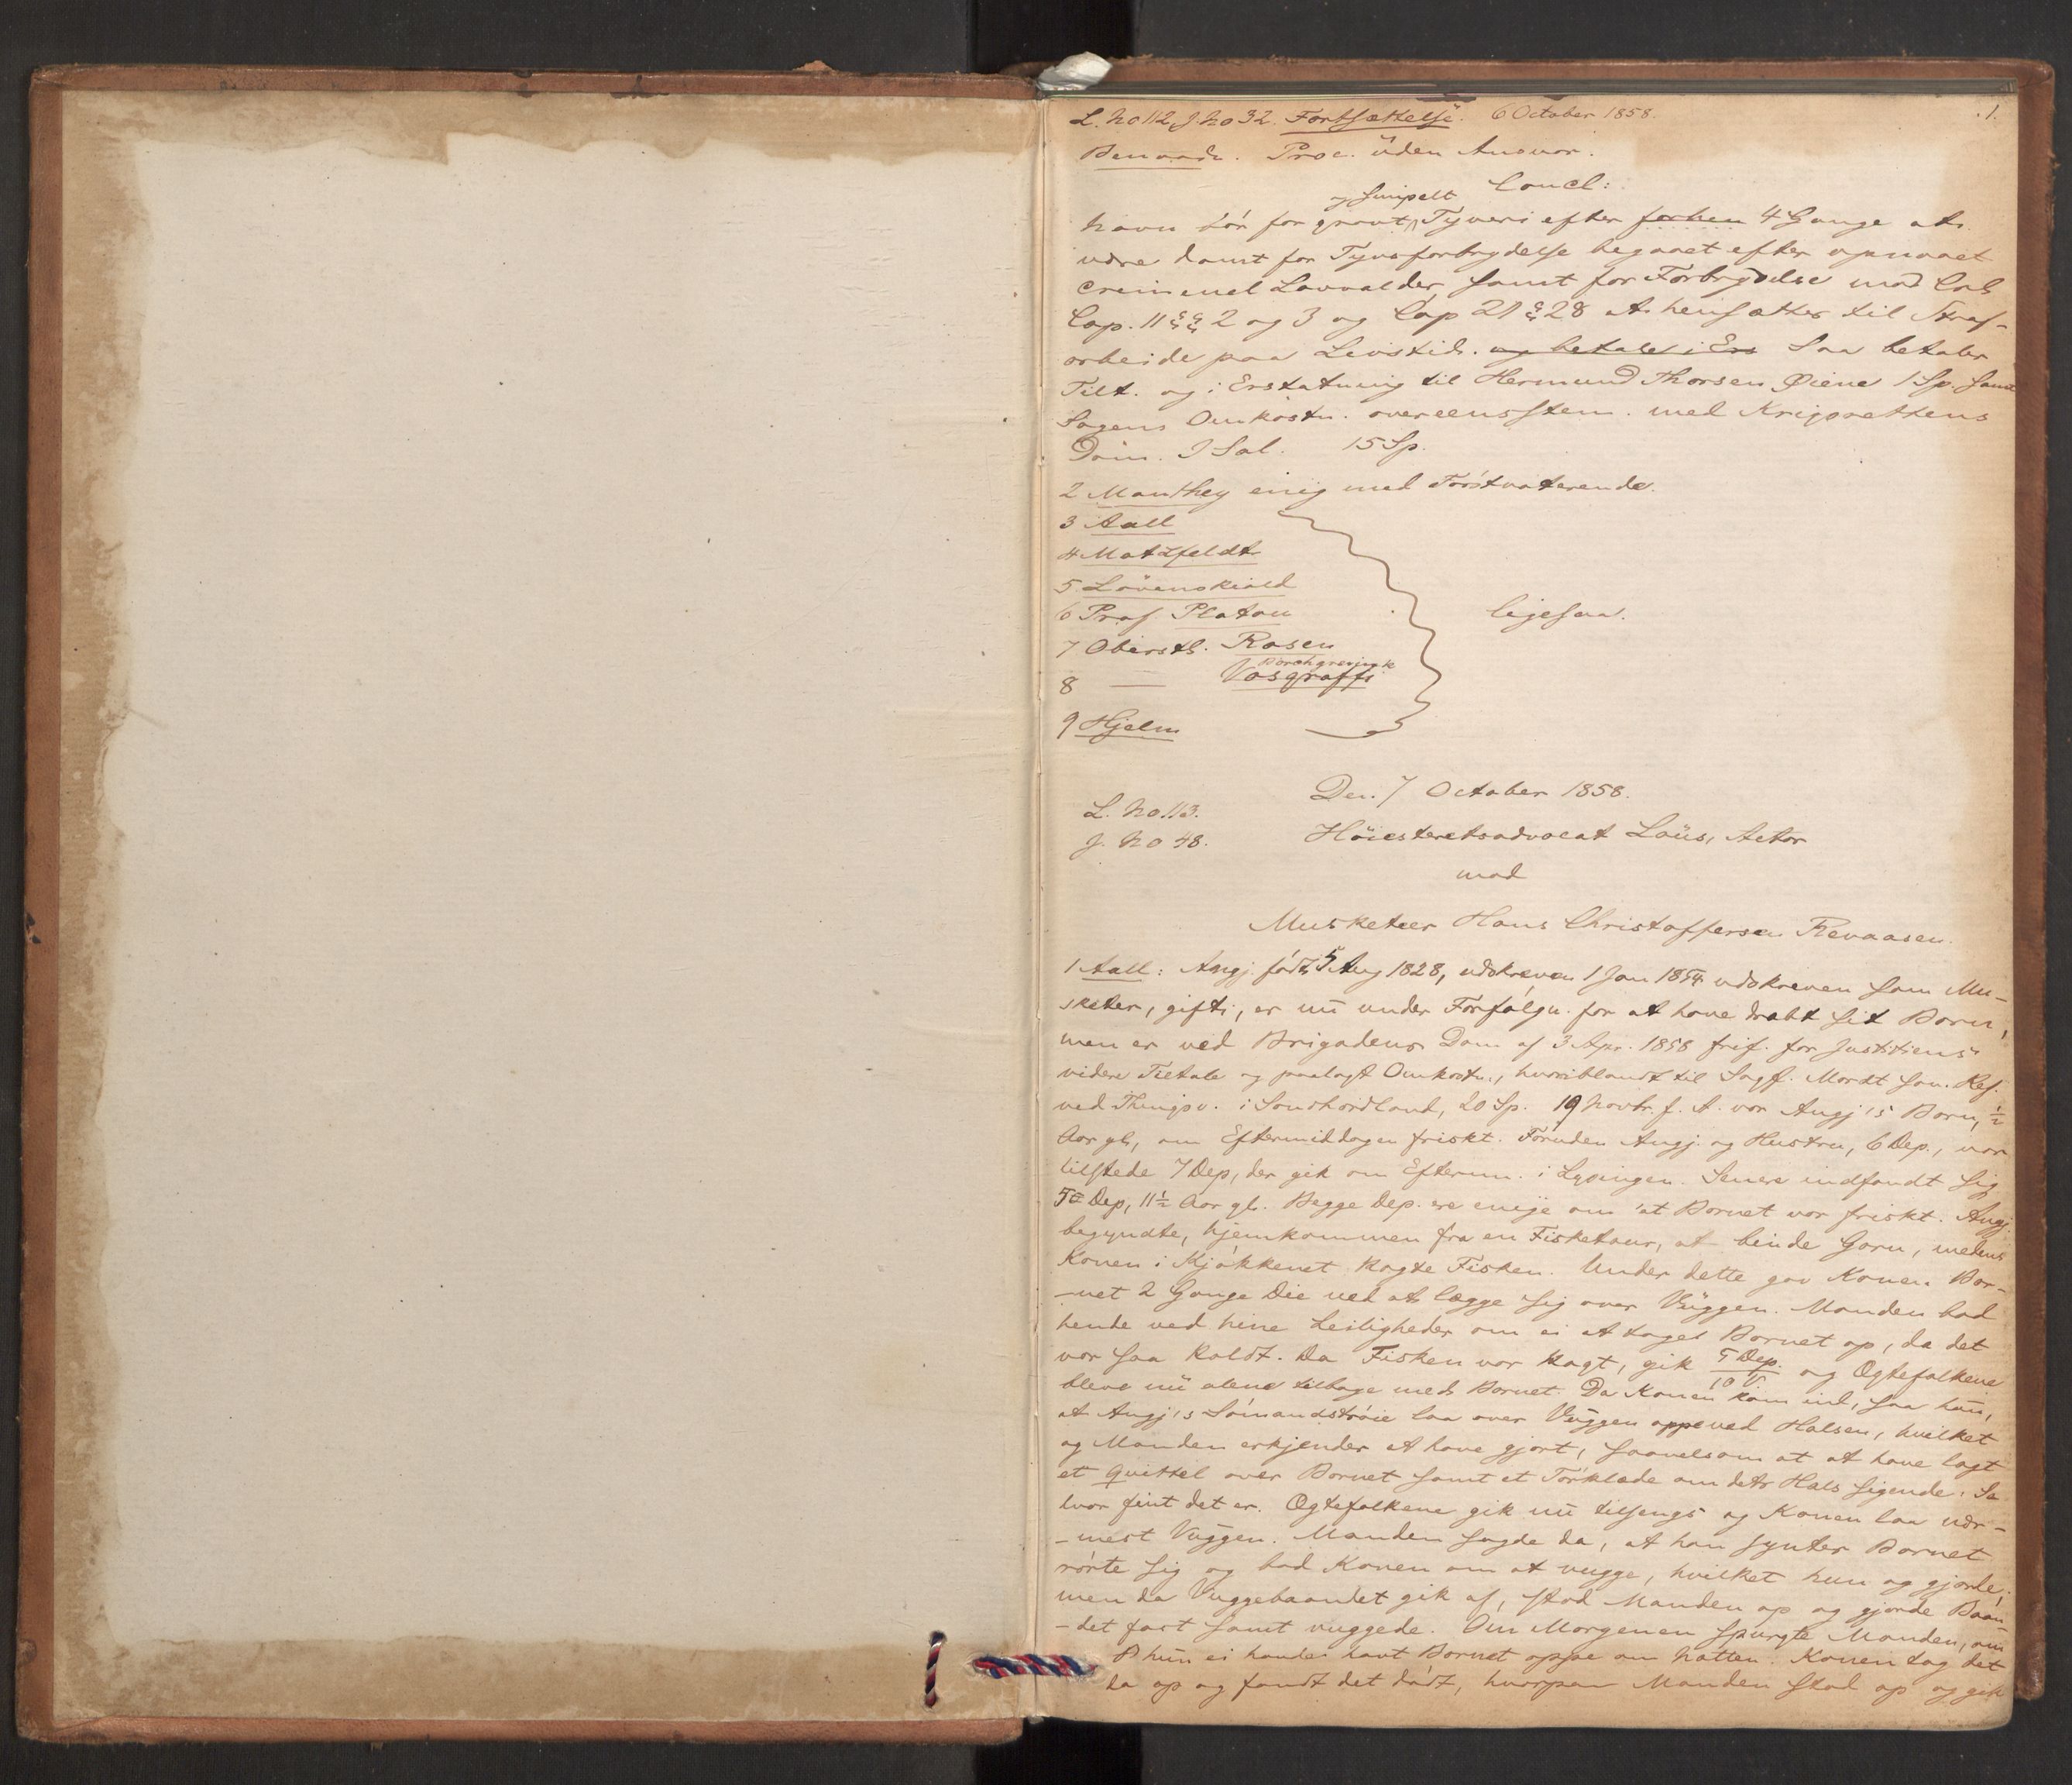 1.
L. No 112, J. No 32. Fortsættelse. 6 October 1858.
Benvade. Proc. uden Ansvar.
Concl:
og simpelt
Havn bör for grovt Tyveri efter forhen 4 Gange at
være dömt for Tyvsforbrydelse begaaet efter opnaaet
criminel Lavalder samt for Forbrydelse mod
Cap. 11 §§ 2 og 3 og Cap 21 § 28 at hensættes til Straf-
arbeide paa Livstid. og betale i Ers Saa betaler
Tilt. og i Erstatning til Hermund Thorsen Øiene 1 Sp. samt
Sagens Omkostn. overeensstem. med Krigsrettens
Dom. I Sal. 15 Sp.
2 Manthey enig med Förstvoterende.
3 Aall
4 Motzfeldt
5 Lövenskiold
6 Prof. Platou ligesaa.
7 Oberstl. Rosen
Borchgrevink
8 — Vosgraff
9 Hjelm
Den 7 October 1858.
L. No 113.
J. No 48. Höiesteretsadvocat Laüs, Actor
mod
Musketeer Hans Christoffersen Revaasen.
1 Aall: Angj. födt 5 Aug 1828, udskreven 1 Jan 1854 udskreven som Mu-
sketer, gift, er nu under Forfölgn. for at have dræbt sit Barn,
men er ved Brigadens Dom af 3 Apr. 1858 frif. for Justitiens
videre Tiltale og paalagt Omkostn., hvoriblandt til Sagf. Mordt
ved Thingsv. i Söndhordland, 20 Sp. 19 Novbr. f. A. var Angj's Barn, ½
Aar gl., om Eftermiddagen friskt. Foruden Angj. og Hustru, 6 Dep., var
tilstede 7 Dep, der gik om Efterm. i Lysningen. Senere indfandt sig
5e Dep, 11½ Aar gl. Begge Dep. ere enige om at Barnet var friskt. Angj.
begyndte, hjemkommen fra en Fisketour, at binde Garn, medens
Konen i Kjökkenet kogte Fisken. Under dette gav Konen Bar-
-net 2 Gange Die ved at lægge sig over Vuggen. Manden bad
hende ved hine Leiligheder om ei at tage Barnet op, da det
var saa koldt. Da Fisken var kogt, gik 5 Dep. og Ægtefolkene
bleve nu alene tilbage med Barnet. Da Konen kom ind, saa hun,
at Angj's Sömandströie laa over Vuggen oppe ved Halsen, hvilket
og Manden erkjender at have gjort, saavelsom at at have lagt
et Qvittel over Barnet samt et Törklæde om dets Hals sigende. Se
hvor fint det er. Ægtefolkene gik nu tilsengs og Konen laa nær-
-mest Vuggen. Manden sagde da, at han syntes Barnet
rörte sig og bad Konen om at vugge, hvilket hun og gjorde,
men da Vuggebaandet gik af, stod Manden op og gjorde Baan-
-det fast samt vuggede. Om Morgenen spurgte Manden, om
hun ei havde havt Barnet oppe om Natten. Konen tog det
da op og fandt det dödt, hvorpaa Manden stod op og gik